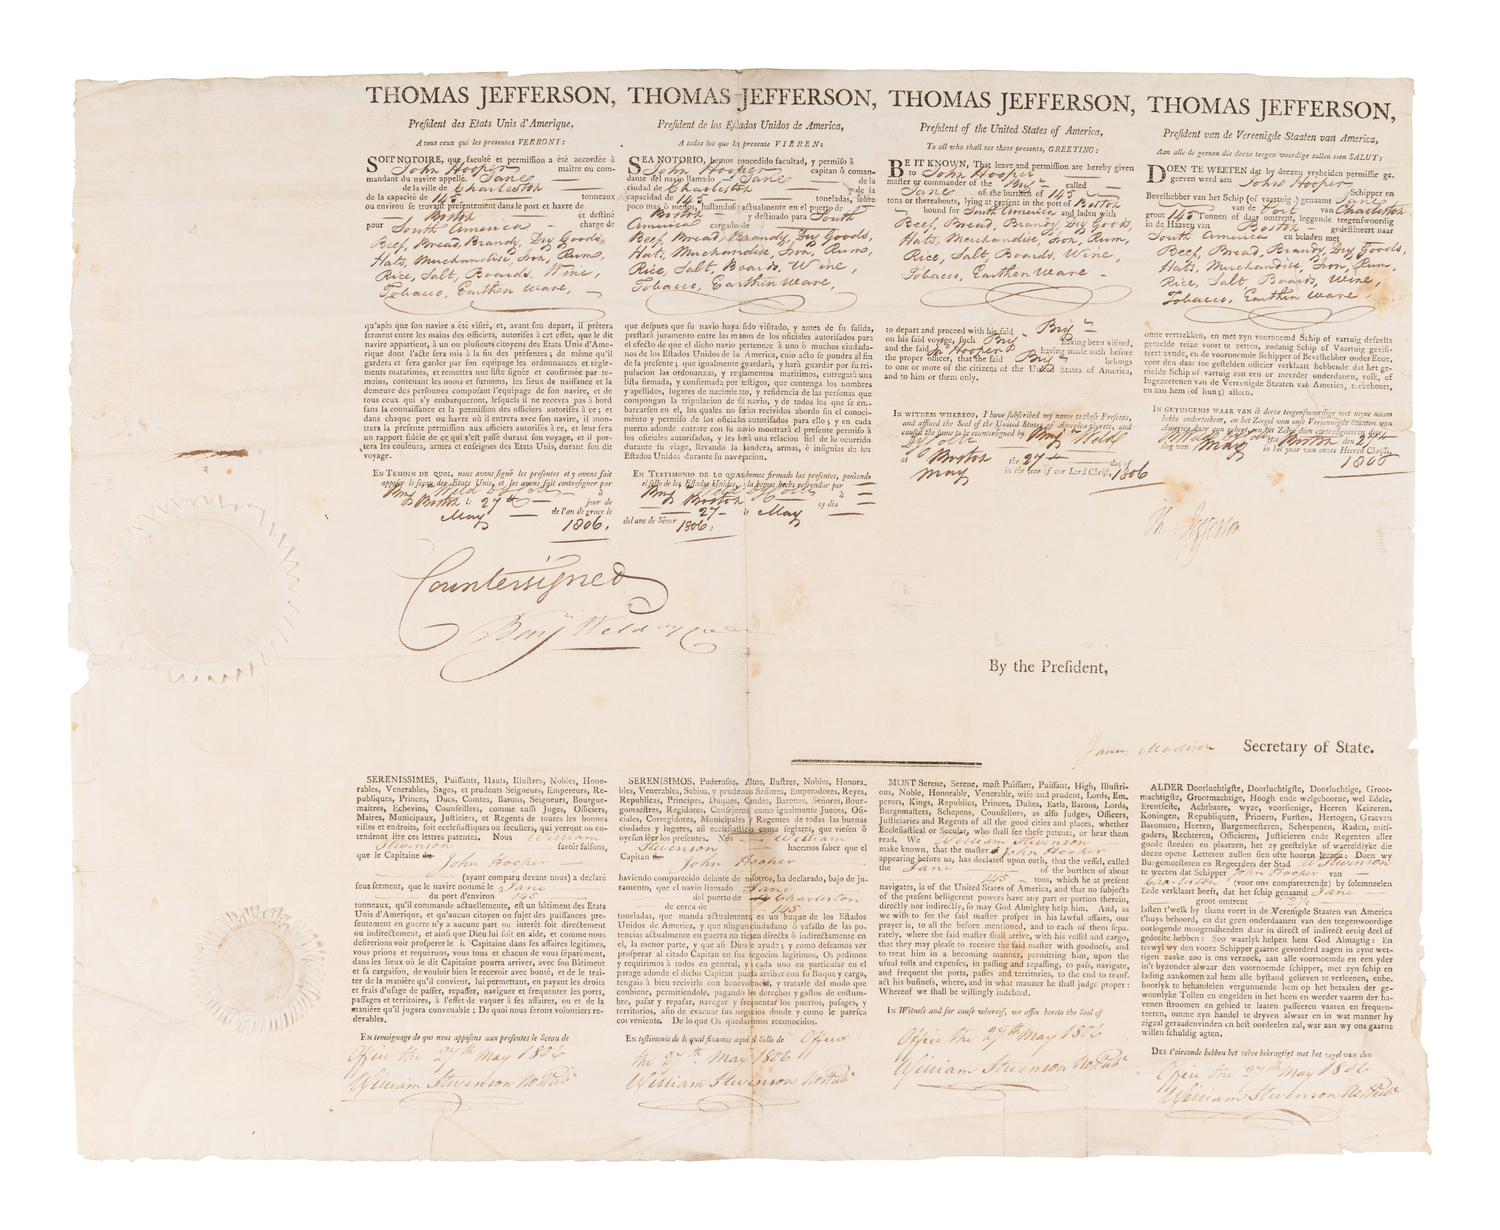 THOMAS JEFFERSON,
President des Etats Unis d'Amerique,
A tous ceux qui les presentes VERRONT:
SOIT NOTOIRE, que faculté et permission a été accordée à
John Hooper maitre ou com-
mandant du navire appellé Jane
de la ville de Charleston
de la capacité de 145 tonneaux
ou environ se trouvant presentement dans le port et havre de
Boston et destiné
pour South America charge de
Beef, Bread, Brandy, Dry Goods,
Hats, Merchandise, Iron, Rum,
Rice, Salt, Boards, Wine,
Tobacco, Earthen Ware,
qu'après que son navire a été visité, et, avant son depart, il prêtera
serment entre les mains des officiers, autorisés à cet effet, que le dit
navire appartient, à un ou plusieurs citoyens des Etats Unis d'Ame-
rique dont l'acte sera mis à la fin des présentes; de même qu'il
gardera et fera garder par son équipage les ordonnances et règle-
ments maratimes, et remettra une liste signée et confirmée par té-
moins, contenant les noms et surnoms, les lieux de naissance et la
demeure des personnes composant l'equipage de son navire, et de
tous ceux qui s'y embarqueront, lesquels il ne recevra pas à bord
sans la connaissance et la permission des officiers autorisés à ce; et
dans chaque port ou havre où il entrera avec son navire, il mon-
trera la presente permission aux officiers autorisés à ce, et leur fera
un rapport fidèle de ce qui s'est passé durant son voyage, et il por-
tera les couleurs, armes et enseignes des Etats Unis, durant son dit
voyage.
EN TEMOIN DE QUOI, nous avons signé les presentes et y avons fait
apposer le sceau des Etats Unis, et les avons fait contresigner par
Benj Weld à
Boston le 27th jour de
May de l'an de grace le
1806,
THOMAS JEFFERSON,
President de los Estados Unidos de America,
A todos que la presente VIEREN:
SEA NOTORIO, hemos concedido facultad, y permiso à
John Hooper capitan ò coman-
dante del navio llamado Jane de la
ciudad de Charleston y de la
capacidad de 145 toneladas, sobre
poco mas ò menos, hallandose actualmente en el puerto de
Boston y destinado para South
America cargado de
Beef, Bread, Brandy, Dry Goods,
Hats, Merchandise, Iron, Rum,
Rice, Salt, Boards, Wine,
Tobacco, Earthen Ware,
que despues que su navio haya sido visitado, y antes de su salida,
prestará juramento entre las manos de los oficiales autorizados para
el efecto de que el dicho navio pertenece à uno ò muchos ciudada-
nos de los Estados Unidos de la America, cuio acto se pondra al fin
de la presente; que igualmente guardará, y hará guardar por su tri-
pulacion las ordonanzas, y reglamentos maritimos, entregará una
lista firmada, y confirmada por testigos, que contenga los nombres
y apellidos, lugares de nacimiento, y residencia de las personas que
compongan la tripulacion de su navio, y de todos los que se em-
barcarsen en el, los quales no serán recividos abordo sin el conoci-
miento y permiso de los oficiales autorizados para ello; y en cada
puerto adonde entrare con su navio mostrará el presente permiso à
los oficiales autorizados, y les hará una relacion fiel de lo ocurrido
durante su viage, llevando la landera, armas, è insignias de los
Estados Unidos durante su navegacion.
EN TESTIMONIO DE LO QUAL hemos firmado las presentes, poniendo
el sello de los Estados Unidos, y la hemos hecho refrendar por
Benj Weld à
Boston el dia
27 de May
del ano de Senor 1806,
THOMAS JEFFERSON,
President of the United States of America,
To all who shall see these presents, GREETING:
BE IT KNOWN, That leave and permission are hereby given
to John Hooper
master or commander of the Brig called
Jane of the burthen of 145
tons or thereabouts, lying at present in the port of Boston
bound for South America and laden with
Beef, Bread, Brandy, Dry Goods,
Hats, Merchandise, Iron, Rum,
Rice, Salt, Boards, Wine,
Tobacco, Earthen Ware
to depart and proceed with his said Brig
on his said voyage, such Brig having been visited,
and the said Jn Hooper having made oath before
the proper officer, that the said Brig belongs
to one or more of the citizens of the United States of America,
and to him or them only.
IN WITNESS WHEREOF, I have subscribed my name to these Presents,
and affixed the Seal of the United States of America thereto, and
caused the same to be countersigned by Benj Weld
at Boston the 27th day of
May in the year of our Lord Christ, 1806
THOMAS JEFFERSON,
President van de Vereenigde Staaten van America,
Aan alle de geenen die deeze tegen woordige sullen sien SALUT:
DOEN TE WEETEN dat by deezen vryheiden permissie ge-
geeven werd aen John Hooper
Schipper en
Bevelhebber van het Schip (of vaartuig) genaamt Jane
van de Port van Charleston
groot 145 Tonnen of daar omtrent, leggende teegenfwoordig
in de Haaven van Boston gedestineert naar
South America en beladen met
Beef, Bread, Brandy, Dry Goods,
Hats, Merchandise, Iron, Rum,
Rice, Salt, Boards, Wine,
Tobacco, Earthen Ware
omte vertrekken, en met zyn voornoemd Schip of vaartuig desselfs
gemelde reize voort te zetten, zodanig Schip of Vaartuig gevisi-
teert zynde, en de voornoemde Schipper of Bevelhebber onder Eede,
voor den daar toe gestelden officier verklaart hebbende dat het ge-
melde Schip of vartuig aan een or meerder onderdanen, volk, of
Ingezeetenen van de Vereenigde Staaten van America, toebehoort,
en aen hem (of hun) alleen.
IN GETUIGENIS WAAR VAN ik deeze teegenswoordige met myne naam
hebbe onderteekent, en het Zeegel van onse Vereenigde Staaten van
America daar aan gehegt
Weld Boston den 27th
dag von May in het jaar van onses Heeren Christi,
1806
Th Jefferson
Countersigned
Benj Weld
By the President,
James Madison Secretary of State.
SERENISSIMES, Puissants, Hauts, Illustres, Nobles, Hono-
rables, Venerables, Sages, et prudents Seigneurs, Empereurs, Re-
publiques, Princes, Ducs, Comtes, Barons, Seigneurs, Bourgue-
maitres, Echevins, Counseillers, comme aussi Juges, Officiers,
Maires, Municipaux, Justiciers, et Regents de toutes les bonnes
villes et endroits, soit ecclesiastiques ou seculiers, qui verront ou en-
tendront lire ces lettres patentes. Nous William
Stevenson savoir faisons,
que le Capitaine de
John Hooper
(ayant comparu devant nous) a declaré
sous serment, que le navire nommé le Jane
du port d'environ 145
tonneaux, qu'il commande actuellemente, est un bâtiment des Etats
Unis d'Amerique, et qu'aucun citoyen ou sujet des puissances pre-
sentement en guerre n'y a aucune part ou interêt soit directement
ou indirectement, et ainsi que Dieu lui soit en aide, et comme nous
desirerions voir prosperer le Capitaine dans ses affaires legitimes,
vous prions et requirons, vous tous et chacun de vous separément,
dans les lieux où le dit Capitaine pourra arriver, avec son Bâtiment
et sa cargaison, de vouloir bien le recevoir avec bonté, et de le trai-
ter de la manière qu'il convient, lui permettant, en payant les droits
et frais d'usage de passer, repasser, naviguer et frequenter les ports,
passages et territoires, à l'effet de vaquer à ses affaires, ou et de la
manière qu'il jugera convenable: De quoi nous serons volontiers re-
devables.
EN temoignage de qui nous apposons aux presentes le Sceau de
Office the 27th May 1806
William Stevenson Not Pub
SERENISIMOS, Poderosos, Altos, Ilustres, Nobles, Honora-
bles, Venerables, Sabios, y prudentes Señores, Emperadores, Reyes,
Republicas, Principes, Duques, Condes, Barones, Señores, Bour-
gomaestres, Regidores, Consejeros como igualmente Jueces, Ofi-
ciales, Corregidores, Municipales y Regentes de todas las buenas
ciudades y lugares, asi ecclesiasticos como seglares, que viesen ò
oyesen léer los presentes. Nos William
Stevenson hacemos saber que el
Capitan de
John Hooper
haviendo comparecido delante de nosotros, ha declarado, bajo de ju-
ramento, que el navio llamado Jane
del puerto de Charleston
de cerca de 145
toneladas, que manda actualmente es un buque de los Estados
Unidos de America, y que ningun ciudadano ò vasallo de las po-
tencias actualmente en guerra no tienen directa ò indirectamente en
el, la menor parte, y que asi Dios le ayude; y como deseamos ver
prosperar al citado Capitan en sus negocios legitimos. Os pedimos
y requirimos à todos en general, y à cada uno en particular en el
parage adonde el dicho Capitan pueda arribar con su Buque y carga,
tengais à bien recivirle con benevolencia, y tratarle del modo que
conbiene, permitiendole, pagando los derechos y gastos de costum-
bre, pasar y repasar, navegar y frequentar los puertos, pasages, y
territorios, afin de evacuar sus negocios donde y como le paresca
conveniente. De loque Os quedaremos reconocidos.
En testimonio de lo qual fixamos aqui el Sello de Office
the 27th May 1806
William Stevenson Not Pub
MOST Serene, Serene, most Puissant, Puissant, High, Illustri-
ous, Noble, Honorable, Venerable, wise and prudent, Lords, Em-
perors, Kings, Republics, Princes, Dukes, Earls, Barons, Lords,
Burgomasters, Schepens, Counsellors, as also Judges, Officers,
Justiciaries and Regents of all the good cities and places, whether
Ecclesiastical or Secular, who shall see these patents, or hear them
read. We William Stevenson
make known, that the master John Hooper
appearing before us, has declared upon oath, that the vessel, called
the Jane of the burthen of about
145 tons, which he at present
navigates, is of the United States of America, and that no subjects
of the present belligerent powers have any part or portion therein,
directly nor indirectly, so may God Almighty help him. And, as
we wish to see the said master prosper in his lawful affairs, our
prayer is, to all the before mentioned, and to each of them sepa-
rately, where the said master shall arrive, with his vessel and cargo,
that they may please to receive the said master with goodness, and
to treat him in a becoming manner, permitting him, upon the
usual tolls and expenses, in passing and repassing, to pass, navigate,
and frequent the ports, passes and territories, to the end to trans-
act his business, where, and in what manner he shall judge proper:
Whereof we shall be willingly indebted.
IN Witness and for cause whereof, we affix hereto the Seal of
Office the 27th May 1806
William Stevenson Not Pub
ALDER Doorluchtigste, Doorluchtigste, Doorluchtige, Groot-
machtigste, Grootmachtige, Hoogh ende welgeboorne, wel Edele,
Erentfeste, Achtbaare, wyze, voorsienige, Heeren Keizeren,
Koningen, Republiquen, Princen, Fursten, Hertogen, Graeven
Baronnen, Heeren, Burgemeesteren, Scheepenen, Raden, mits-
gaders, Rechteren, Officieren, Justicieren ende Regenten aller
goede steeden en plaatzen, het zy geestelyke of waereldlyke die
deeze opene Letteren zullen sien ofte hooren leezen: Doen wy
Burgemeesteren en Regeerders der Stad W Stevenson
te weeten dat Schipper John Hooper van
Charleston (voor ons compareerende) by solemneelen
Eede verklaart heeft, dat het schip genaamd Jane
groot omtrent
lasten t'welk hy thans voert in de Verenigde Staaten van America
t'huys behoord, en dat geen onderdaanen van den teegenwoordige
oorlogende moogendheeden daar in direct of indirect enig deel of
gedeelte hebben: Soo waarlyk helpen hem God Almagtig: En
terwyl wy den voorz Schipper gaarne gevorderd zagen in zyne wet-
tigen zaake zoo is ons verzoek, aan alle voornoemde en een yder
in't byzonder alwaar den voornoemde schipper, met zyn schip en
lading aankomen zal hem alle bystand gelieven te verleenen, enbe-
hoorlyk te behandelen vergunnende hem op het betaalen der ge-
woonlyke Tollen en ongelden in het heen en weeder vaaren der ha-
venen stroomen en gebied te laaten passeeren vaaren en frequen-
teeren, omme zyn handel te dryven alwaar en in wat manner hy
zigzal geraadenvinden en best oordeelen zal, war aan wy ons gaarne
willen schuldig agten.
DES t'oirconde hebben het zelve bekragtigt met het zegel van den
Office the 27th May 1806
William Stevenson Not Pub